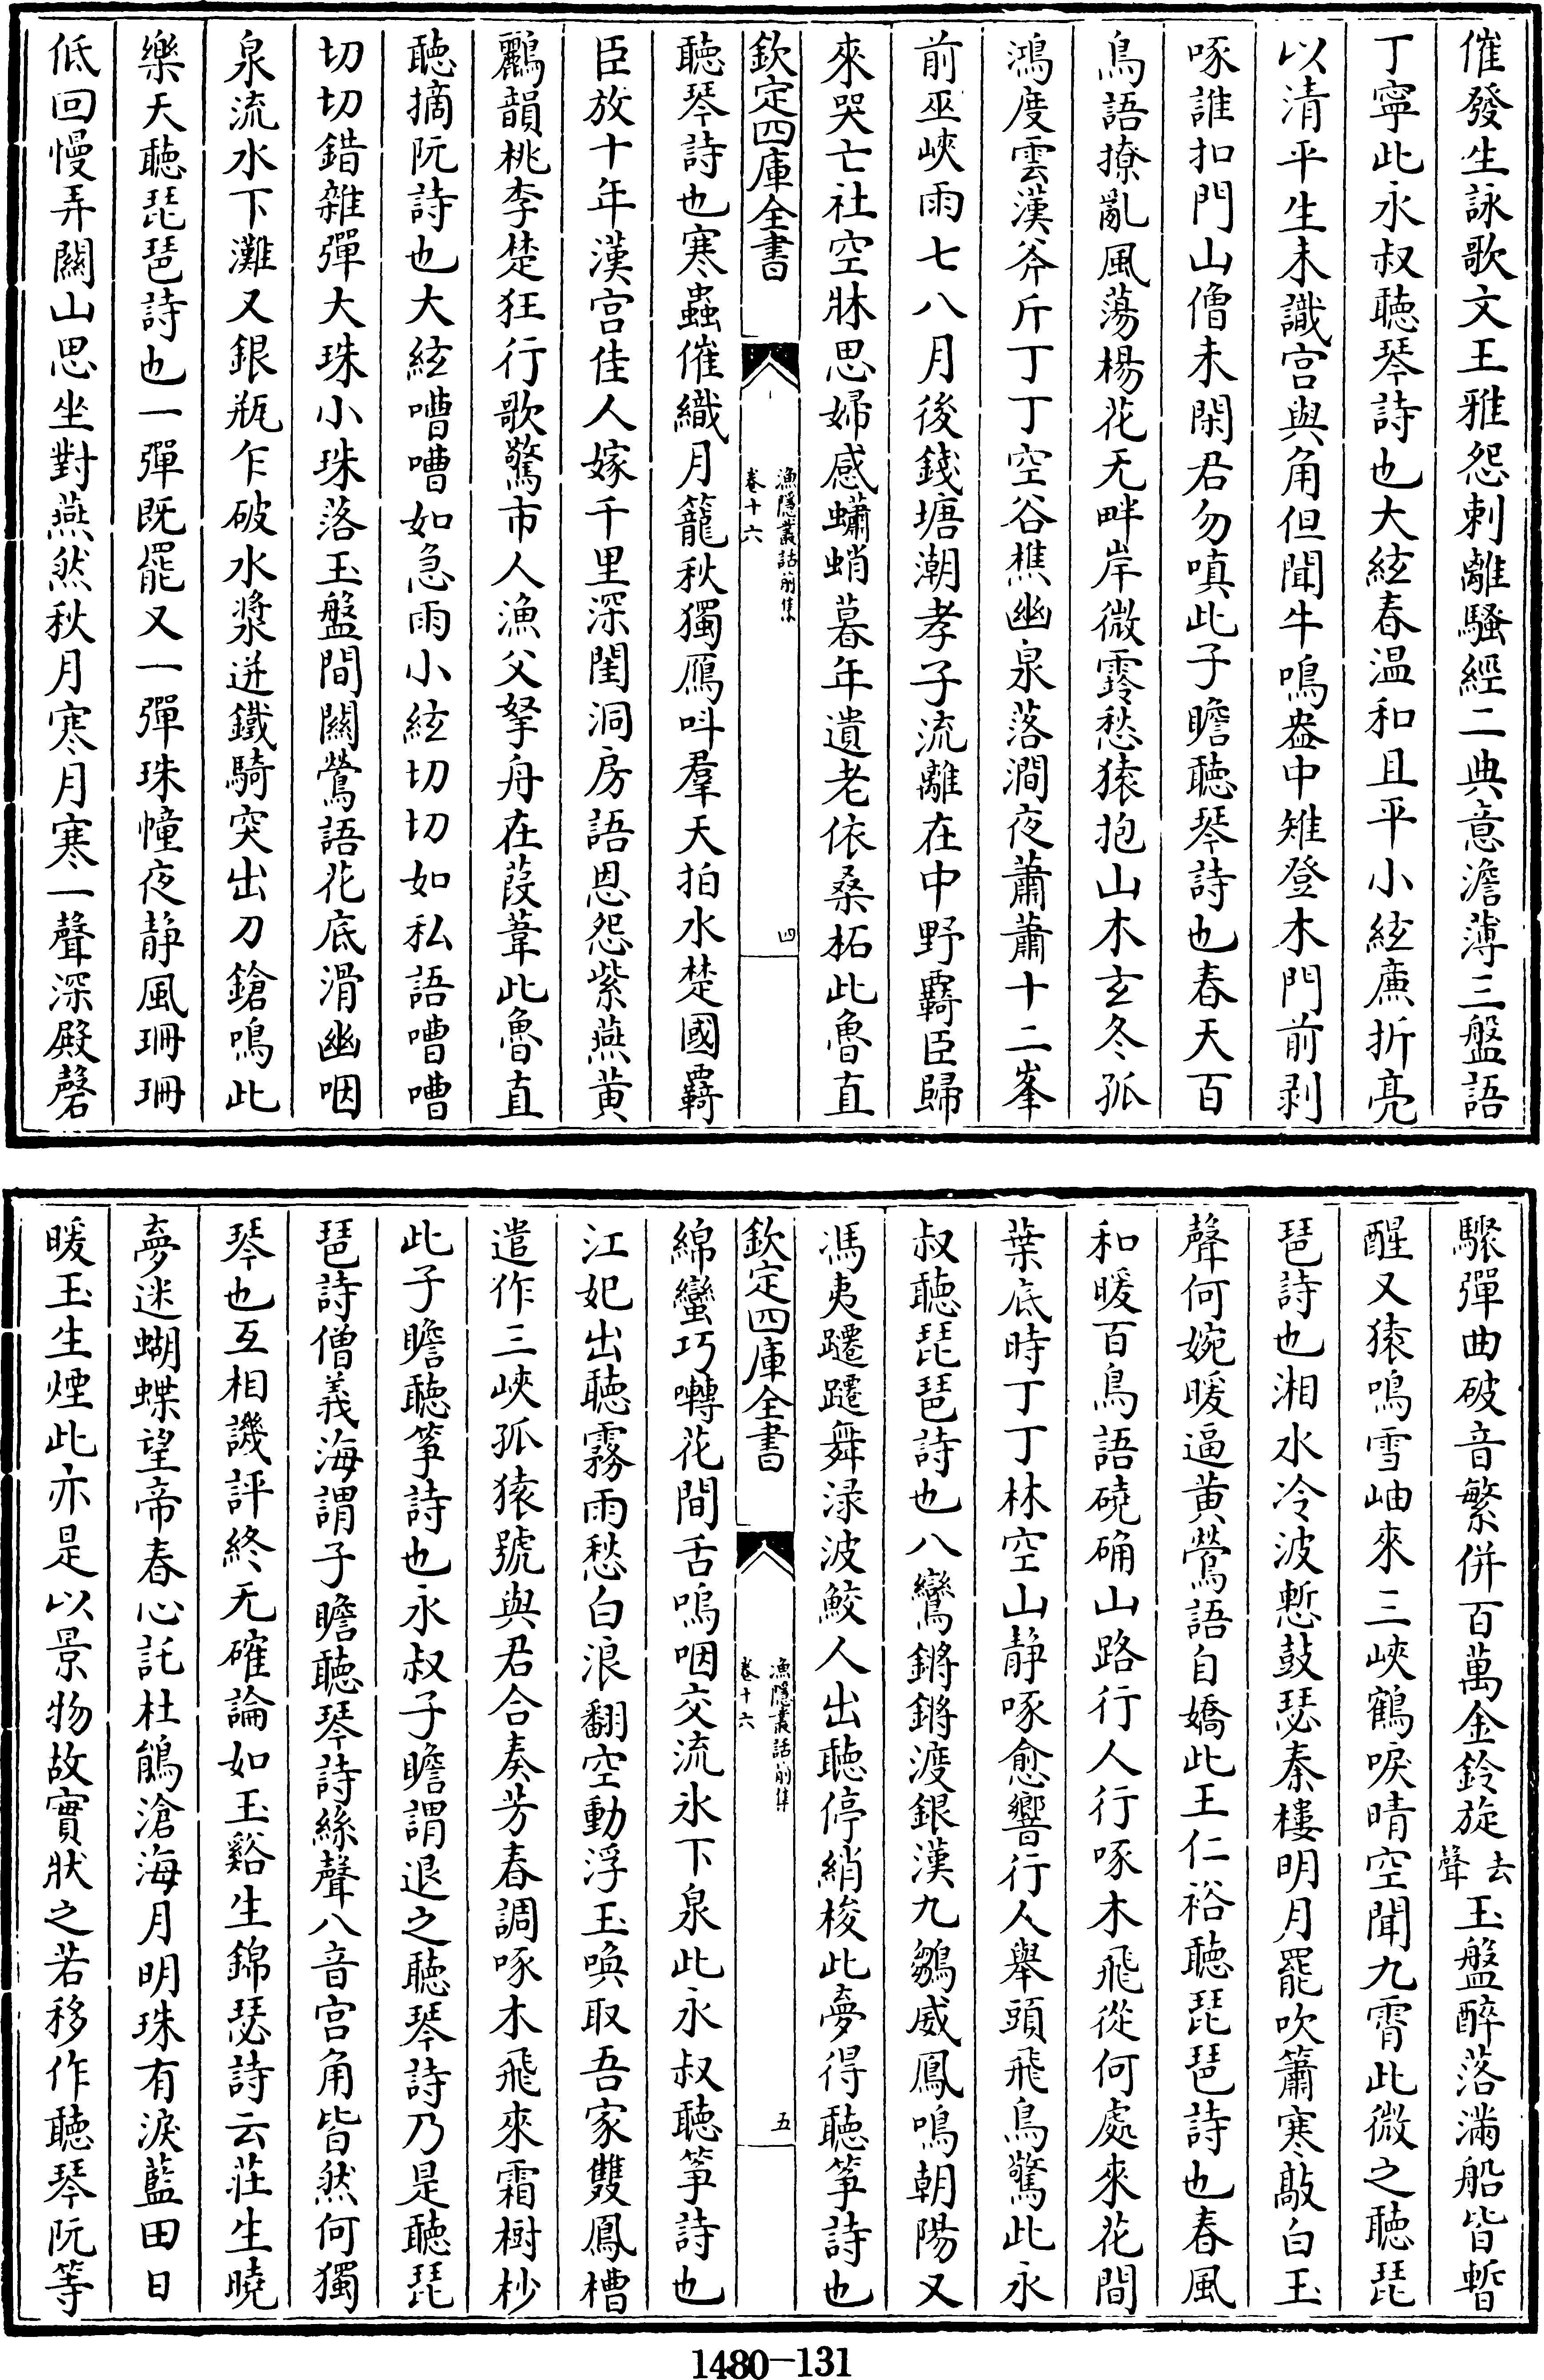 催發生詠歌文王雅怨刺離騷經二典意澹薄三盤語
丁寧此永叔聽琴詩也大絃春温和且平小絃㢘折亮
以清平生未識宫與角但聞牛鳴盎中雉登木門前剥
啄誰扣門山僧未閑君勿嗔此子瞻聽琴詩也春天百
鳥語撩亂風蕩楊花无畔岸微霧愁猿抱山木玄冬孤
鴻度雲漢斧斤丁丁空谷樵幽泉落澗夜蕭蕭十二峯
前巫峽雨七八月後錢塘潮孝子流離在中野覉臣歸
來哭亡社空牀思婦感蠨蛸暮年遺老依桑柘此魯直
欽定四庫全書
漁隱叢話前集
卷十六
四
聽琴詩也寒蟲催織月籠秋獨鴈呌羣天拍水楚國覉
臣放十年漢宫佳人嫁千里深閨洞房語恩怨紫燕黄
鸝韻桃李楚狂行歌驚市人漁父拏舟在葭葦此魯直
聽摘阮詩也大絃嘈嘈如急雨小絃切切如私語嘈嘈
切切錯雜彈大珠小珠落玉盤間關鶯語花底滑幽咽
泉流水下灘又銀瓶乍破水漿迸鐵騎突出刀鎗鳴此
樂天聽琵琶詩也一彈既罷又一彈珠幢夜静風珊珊
低回慢弄關山思坐對燕然秋月寒月寒一聲深殿磬
驟彈曲破音繁併百萬金鈴旋去聲玉盤醉落滿船皆暫
醒又猿鳴雪岫來三峽鶴唳晴空聞九霄此微之聽琵
琶詩也湘水冷波慙鼓瑟秦樓明月罷吹簫寒敲白玉
聲何婉暖逼黄鶯語自嬌此王仁裕聽琵琶詩也春風
和暖百鳥語磽确山路行人行啄木飛從何處來花間
葉底時丁丁林空山静啄愈響行人舉頭飛鳥驚此永
叔聽琵琶詩也八鸞鏘鏘渡銀漢九雛威鳳鳴朝陽又
馮夷躚躚舞渌波鮫人出聽停綃梭此夢得聽筝詩也
欽定四庫全書
漁隱叢話前集
卷十六
五
綿蠻巧囀花間舌嗚咽交流氷下泉此永叔聽筝詩也
江妃出聽霧雨愁白浪翻空動浮玉喚取吾家雙鳳槽
遣作三峽孤猿號與君合奏芳春調啄木飛來霜樹杪
此子瞻聽筝詩也永叔子瞻謂退之聽琴詩乃是聽琵
琶詩僧義海謂子瞻聽琴詩絲聲八音宫角皆然何獨
琴也互相譏評終无確論如玉谿生錦瑟詩云莊生曉
夢迷蝴蝶望帝春心託杜鵑滄海月明珠有淚藍田日
暖玉生煙此亦是以景物故實狀之若移作聽琴阮等
1480—131